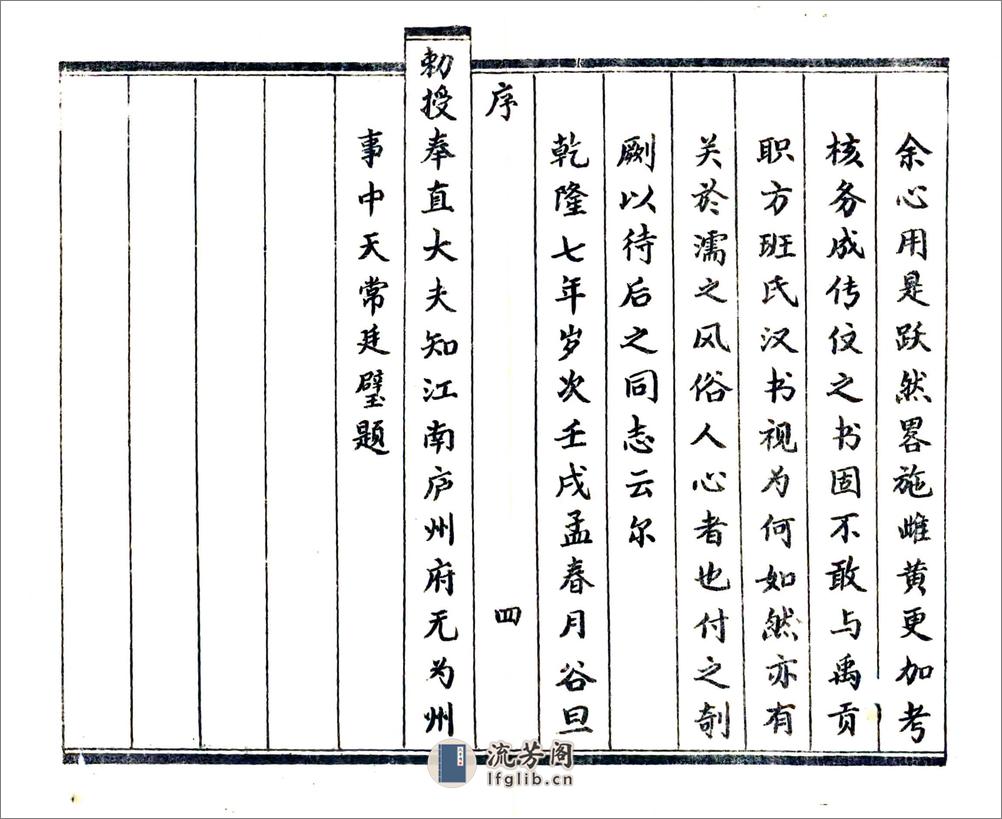 余心用是跃然畧施雌黄更加考
核务成传佼之书固不敢与禹贡
职方班氏汉书视为何如然亦有
关於濡之风俗人心者也付之剞
劂以待后之同志云尔
乾隆七年岁次壬戌孟春月谷旦
序 四
勅授奉直大夫知江南庐州府无为州
事中天常廷璧题
流芳阁
lfglib.cn